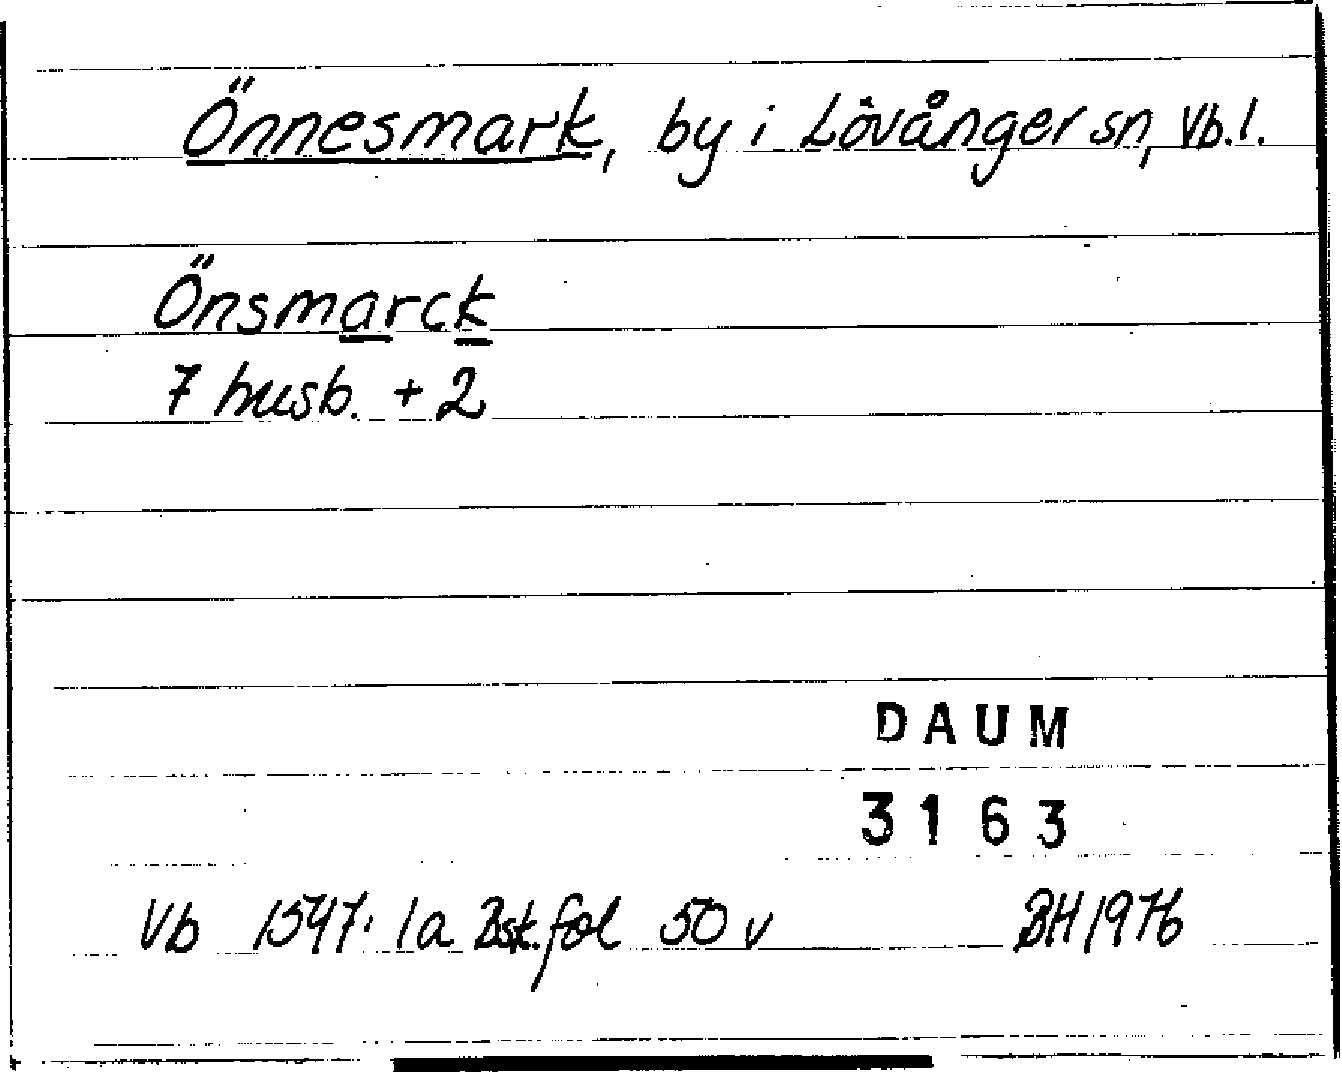 Önnesmark, by i Lövånger sn, Vb.l.
Önsmarck
7 husb. + 2
DAUM
3163
Vb 1547:1a Bsk.fol 50 v BH1976